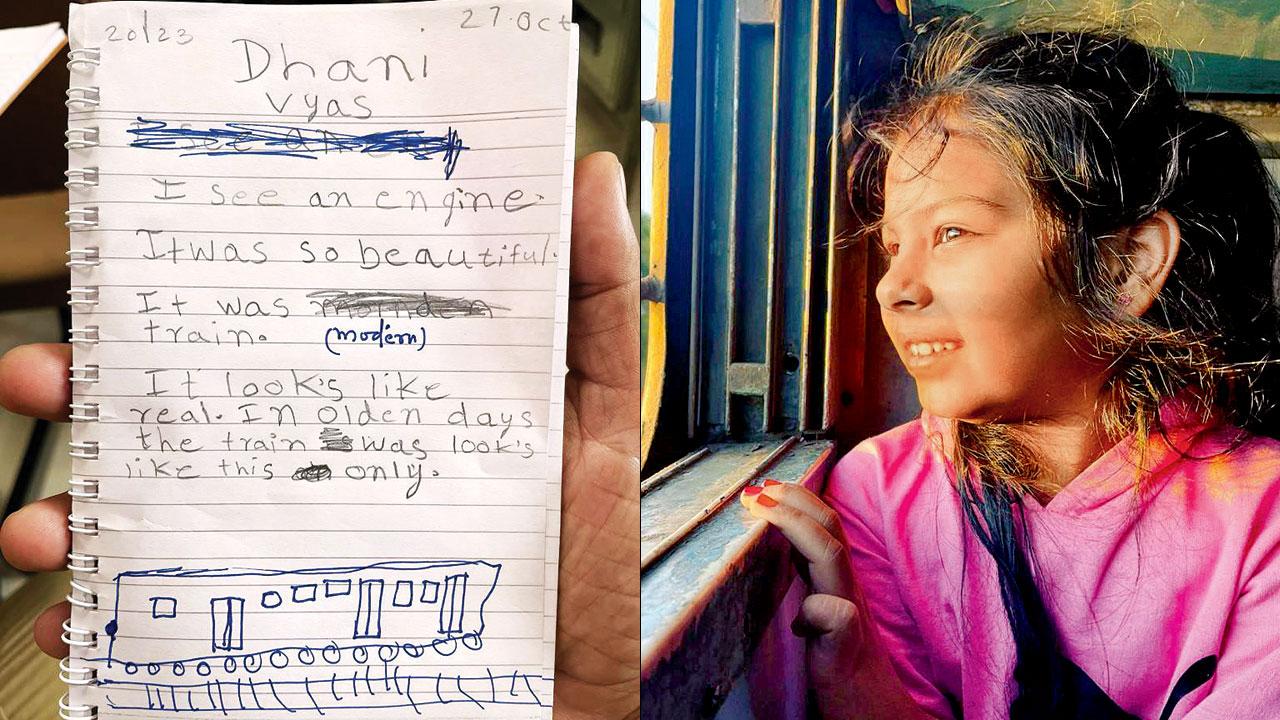 2023 27.Oct
Dhani
Vyas
I see an engine.
It was so beautiful.
It was
train. (modern)
It look's like
real. In olden days
the train was look's
like this only.